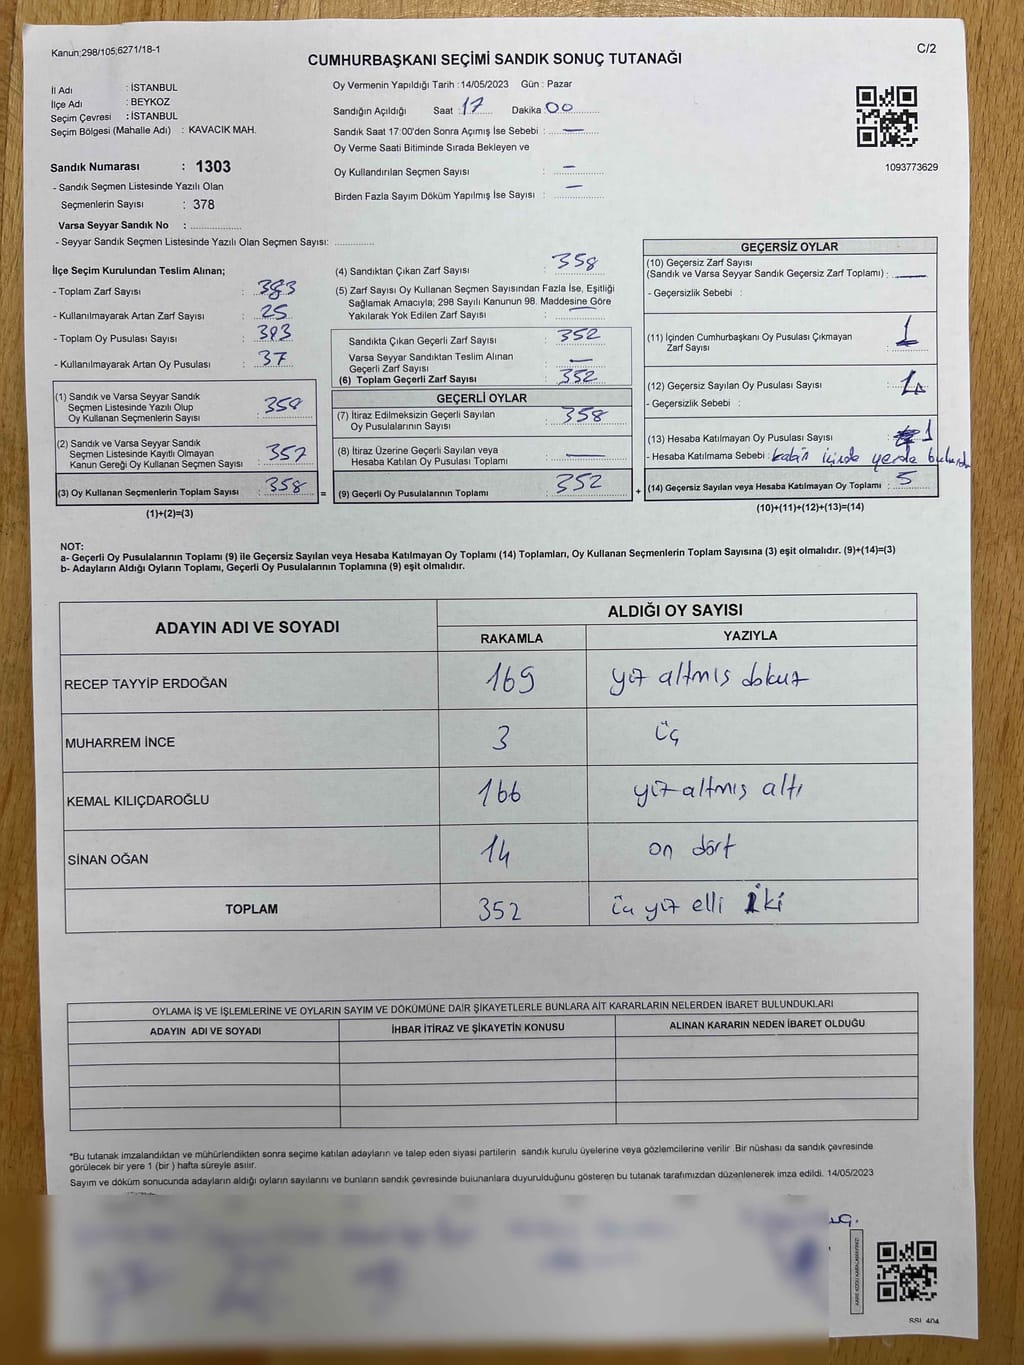 Kanun;298/105;6271/18-1
C/2
CUMHURBAŞKANI SEÇİMİ SANDIK SONUÇ TUTANAĞI
İl Adı : İSTANBUL
İlçe Adı : BEYKOZ
Seçim Çevresi : İSTANBUL
Seçim Bölgesi (Mahalle Adı) : KAVACIK MAH.
Sandık Numarası : 1303
- Sandık Seçmen Listesinde Yazılı Olan
Seçmenlerin Sayısı : 378
Varsa Seyyar Sandık No : ....................
- Seyyar Sandık Seçmen Listesinde Yazılı Olan Seçmen Sayısı: ...............
Oy Vermenin Yapıldığı Tarih : 14/05/2023 Gün : Pazar
Sandığın Açıldığı Saat : 17 Dakika 00
Sandık Saat 17:00'den Sonra Açımış İse Sebebi : —
Oy Verme Saati Bitiminde Sırada Bekleyen ve
Oy Kullandırılan Seçmen Sayısı : —
Birden Fazla Sayım Döküm Yapılmış İse Sayısı : —
1093773629
İlçe Seçim Kurulundan Teslim Alınan;
- Toplam Zarf Sayısı : 383
- Kullanılmayarak Artan Zarf Sayısı : 25
- Toplam Oy Pusulası Sayısı : 393
- Kullanılmayarak Artan Oy Pusulası : 37
(1) Sandık ve Varsa Seyyar Sandık
Seçmen Listesinde Yazılı Olup
Oy Kullanan Seçmenlerin Sayısı : 358
(2) Sandık ve Varsa Seyyar Sandık
Seçmen Listesinde Kayıtlı Olmayan
Kanun Gereği Oy Kullanan Seçmen Sayısı : 357
(3) Oy Kullanan Seçmenlerin Toplam Sayısı : 358 =
(1)+(2)=(3)
(4) Sandıktan Çıkan Zarf Sayısı : 358
(5) Zarf Sayısı Oy Kullanan Seçmen Sayısından Fazla İse, Eşitliği
Sağlamak Amacıyla, 298 Sayılı Kanunun 98. Maddesine Göre
Yakılarak Yok Edilen Zarf Sayısı : —
Sandıkta Çıkan Geçerli Zarf Sayısı : 352
Varsa Seyyar Sandıktan Teslim Alınan
Geçerli Zarf Sayısı : —
(6) Toplam Geçerli Zarf Sayısı : 352
GEÇERLİ OYLAR
(7) İtiraz Edilmeksizin Geçerli Sayılan
Oy Pusulalarının Sayısı : 358
(8) İtiraz Üzerine Geçerli Sayılan veya
Hesaba Katılan Oy Pusulası Toplamı : —
(9) Geçerli Oy Pusulalarının Toplamı : 352 +
GEÇERSİZ OYLAR
(10) Geçersiz Zarf Sayısı
(Sandık ve Varsa Seyyar Sandık Geçersiz Zarf Toplamı) : —
- Geçersizlik Sebebi :
(11) İçinden Cumhurbaşkanı Oy Pusulası Çıkmayan
Zarf Sayısı : 1
(12) Geçersiz Sayılan Oy Pusulası Sayısı :
- Geçersizlik Sebebi :
(13) Hesaba Katılmayan Oy Pusulası Sayısı 1
- Hesaba Katılmama Sebebi : kabin içinde yerde bulundu
(14) Geçersiz Sayılan veya Hesaba Katılmayan Oy Toplamı : 5
(10)+(11)+(12)+(13)=(14)
NOT:
a- Geçerli Oy Pusulalarının Toplamı (9) ile Geçersiz Sayılan veya Hesaba Katılmayan Oy Toplamı (14) Toplamları, Oy Kullanan Seçmenlerin Toplam Sayısına (3) eşit olmalıdır. (9)+(14)=(3)
b- Adayların Aldığı Oyların Toplamı, Geçerli Oy Pusulalarının Toplamına (9) eşit olmalıdır.
ADAYIN ADI VE SOYADI
ALDIĞI OY SAYISI
RAKAMLA YAZIYLA
RECEP TAYYİP ERDOĞAN 169 yüz altmış dokuz
MUHARREM İNCE 3 üç
KEMAL KILIÇDAROĞLU 166 yüz altmış altı
SİNAN OĞAN 14 on dört
TOPLAM 352 üç yüz elli iki
OYLAMA İŞ VE İŞLEMLERİNE VE OYLARIN SAYIM VE DÖKÜMÜNE DAİR ŞİKAYETLERLE BUNLARA AİT KARARLARIN NELERDEN İBARET BULUNDUKLARI
ADAYIN ADI VE SOYADI İHBAR İTİRAZ VE ŞİKAYETİN KONUSU ALINAN KARARIN NEDEN İBARET OLDUĞU
*Bu tutanak imzalandıktan ve mühürlendikten sonra seçime katılan adayların ve talep eden siyasi partilerin sandık kurulu üyelerine veya gözlemcilerine verilir. Bir nüshası da sandık çevresinde
görülecek bir yere 1 (bir ) hafta süreyle asılır.
Sayım ve döküm sonucunda adayların aldığı oyların sayılarını ve bunların sandık çevresinde bulunanlara duyurulduğunu gösteren bu tutanak tarafımızdan düzenlenerek imza edildi. 14/05/2023